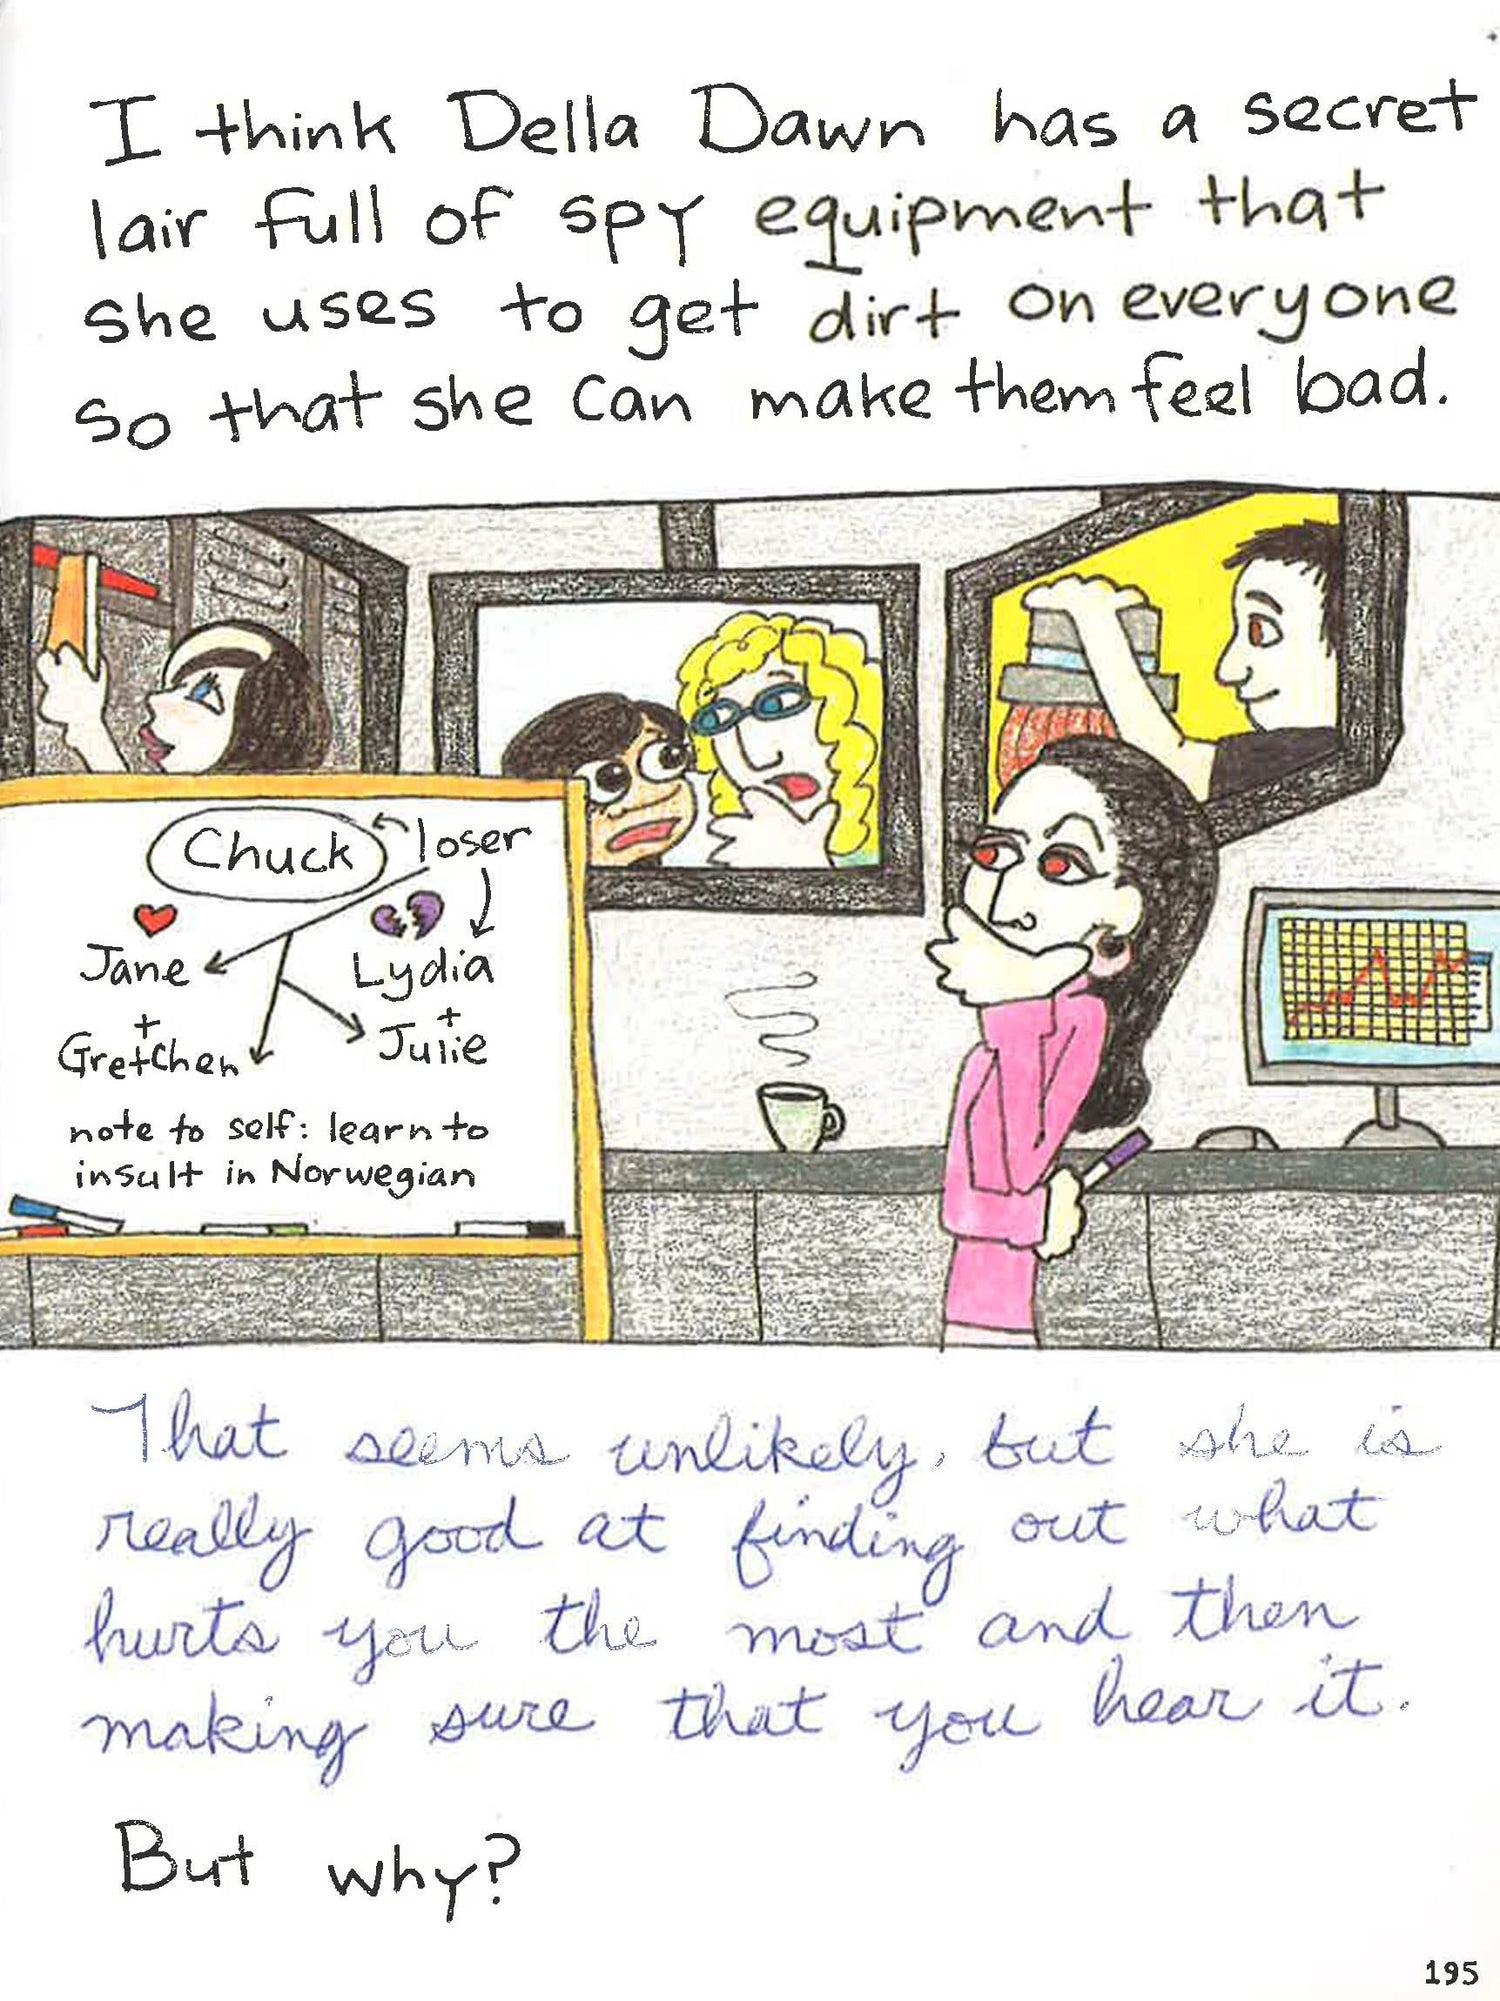 I think Della Dawn has a secret
lair full of spy equipment that
she uses to get dirt on everyone
so that she can make them feel bad.
Chuck loser
Jane Lydia
+ +
Gretchen Julie
note to self: learn to
insult in Norwegian
That seems unlikely, but she is
really good at finding out what
hurts you the most and then
making sure that you hear it.
But why?
195